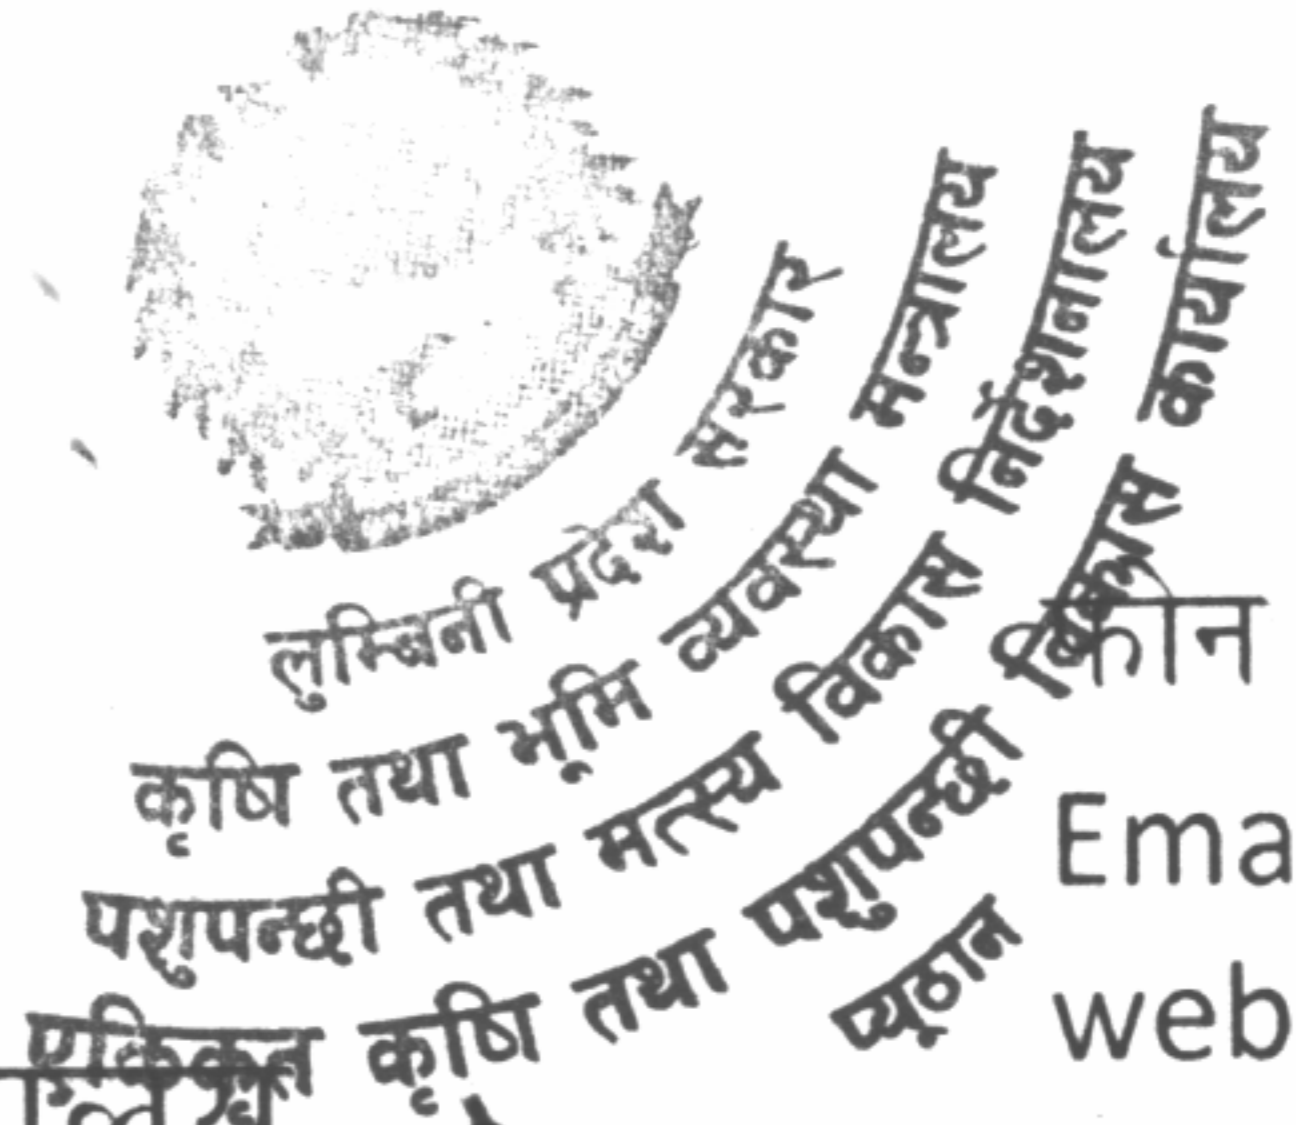 लुम्बिनी प्रदेश सरकार
कृषि तथा भूमि व्यवस्था मन्त्रालय
पशुपन्छी तथा मत्स्य विकास निर्देशनालय
एकिकृत कृषि तथा पशुपन्छी विकास कार्यालय
प्यूठान
फोन
Ema
web